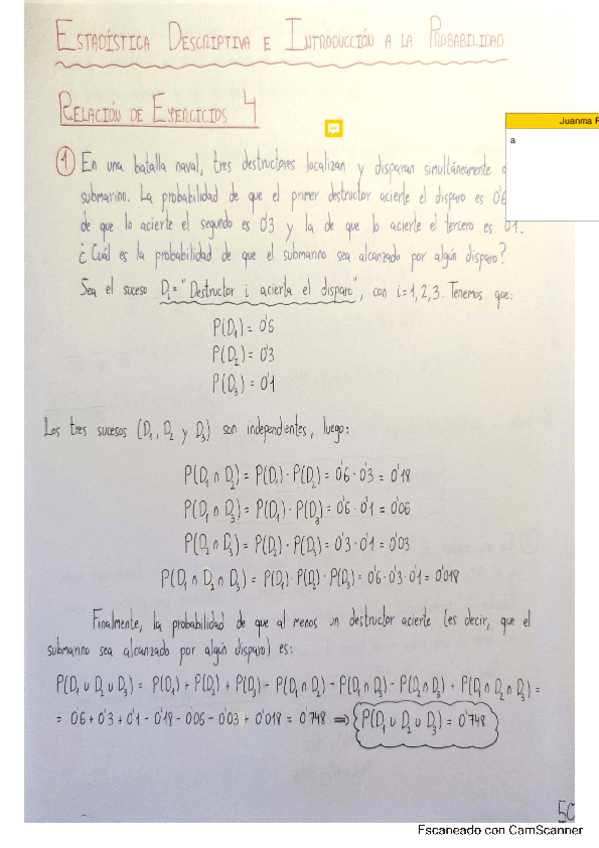 ESTADÍSTICA DESCRIPTIVA E INTRODUCCIÓN A LA PROBABILIDAD
RELACIÓN DE EJERCICIOS 4
Juanma
a
① En una batalla naval, tres destructores localizan y disparan simultáneamente
submarino. La probabilidad de que el primer destructor acierte el disparo es 0'6
de que lo acierte el segundo es 0'3 y la de que lo acierte el tercero es 0'1.
¿Cuál es la probabilidad de que el submarino sea alcanzado por algún disparo?
Sea el suceso Di = "Destructor i acierta el disparo", con i=1,2,3. Tenemos que:
P(D₁) = 0'6
P(D₂) = 0'3
P(D₃) = 0'1
Los tres sucesos (D₁, D₂ y D₃) son independientes, luego:
P(D₁ ∩ D₂) = P(D₁) · P(D₂) = 0'6 · 0'3 = 0'18
P(D₁ ∩ D₃) = P(D₁) · P(D₃) = 0'6 · 0'1 = 0'06
P(D₂ ∩ D₃) = P(D₂) · P(D₃) = 0'3 · 0'1 = 0'03
P(D₁ ∩ D₂ ∩ D₃) = P(D₁) · P(D₂) · P(D₃) = 0'6 · 0'3 · 0'1 = 0'018
Finalmente, la probabilidad de que al menos un destructor acierte (es decir, que el
submarino sea alcanzado por algún disparo) es:
P(D₁ ∪ D₂ ∪ D₃) = P(D₁) + P(D₂) + P(D₃) - P(D₁ ∩ D₂) - P(D₁ ∩ D₃) - P(D₂ ∩ D₃) + P(D₁ ∩ D₂ ∩ D₃) =
= 0'6 + 0'3 + 0'1 - 0'18 - 0'06 - 0'03 + 0'018 = 0'748 ⟹ P(D₁ ∪ D₂ ∪ D₃) = 0'748
50
Escaneado con CamScanner